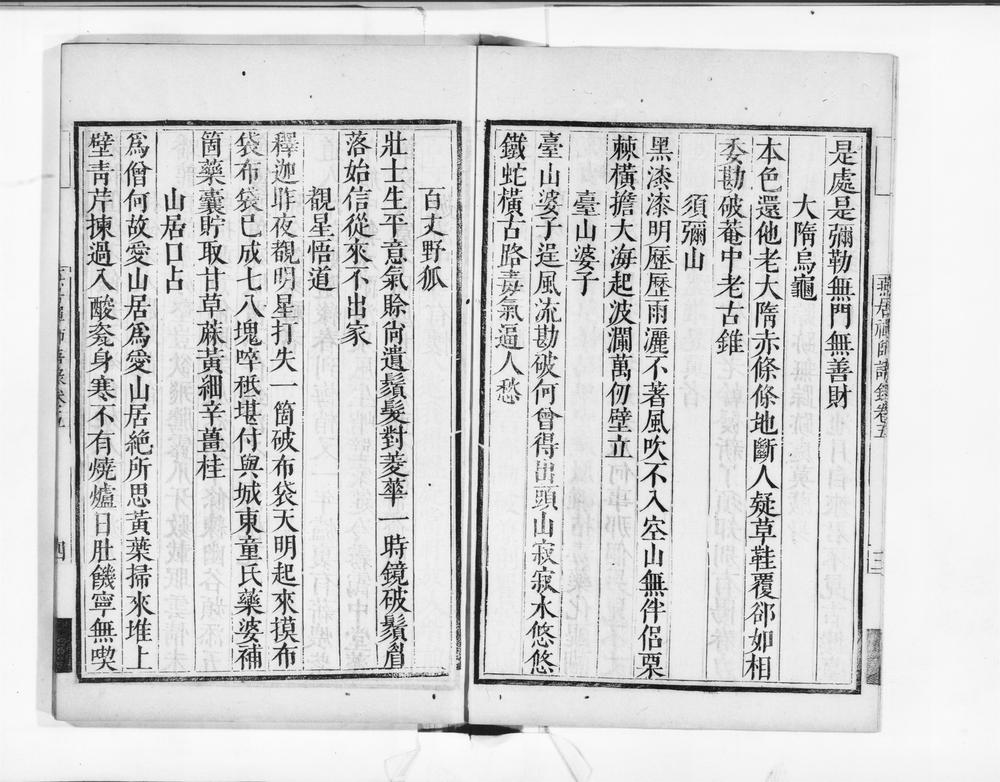 是處是彌勒無門無善財
大隋烏龜
本色還他老大隋赤條條地斷人疑草鞋覆郤如相
委勘破菴中老古錐
須彌山
黑漆漆明歷歷雨灑不著風吹不入空山無伴侶栗
棘橫擔大海起波瀾萬仞壁立
臺山婆子
臺山婆子逞風流勘破何曾得出頭山寂寂水悠悠
鐵蛇橫古路毒氣逼人愁
百丈野狐
壯士生平意氣賒尙遺鬚髮對菱華一時鏡破鬚眉
落始信從來不出家
覩星悟道
釋迦昨夜覩明星打失一箇破布袋天明起來摸布
袋布袋已成七八塊啐秪堪付與城東童氏藥婆補
箇藥囊貯取甘草蔴黃細辛薑桂
山居口占
爲僧何故愛山居爲愛山居絶所思黃葉掃來堆上
壁靑芹揀過入酸㼜身寒不有燒爐日肚饑寧無喫
燕居禪師語錄卷五
三
四